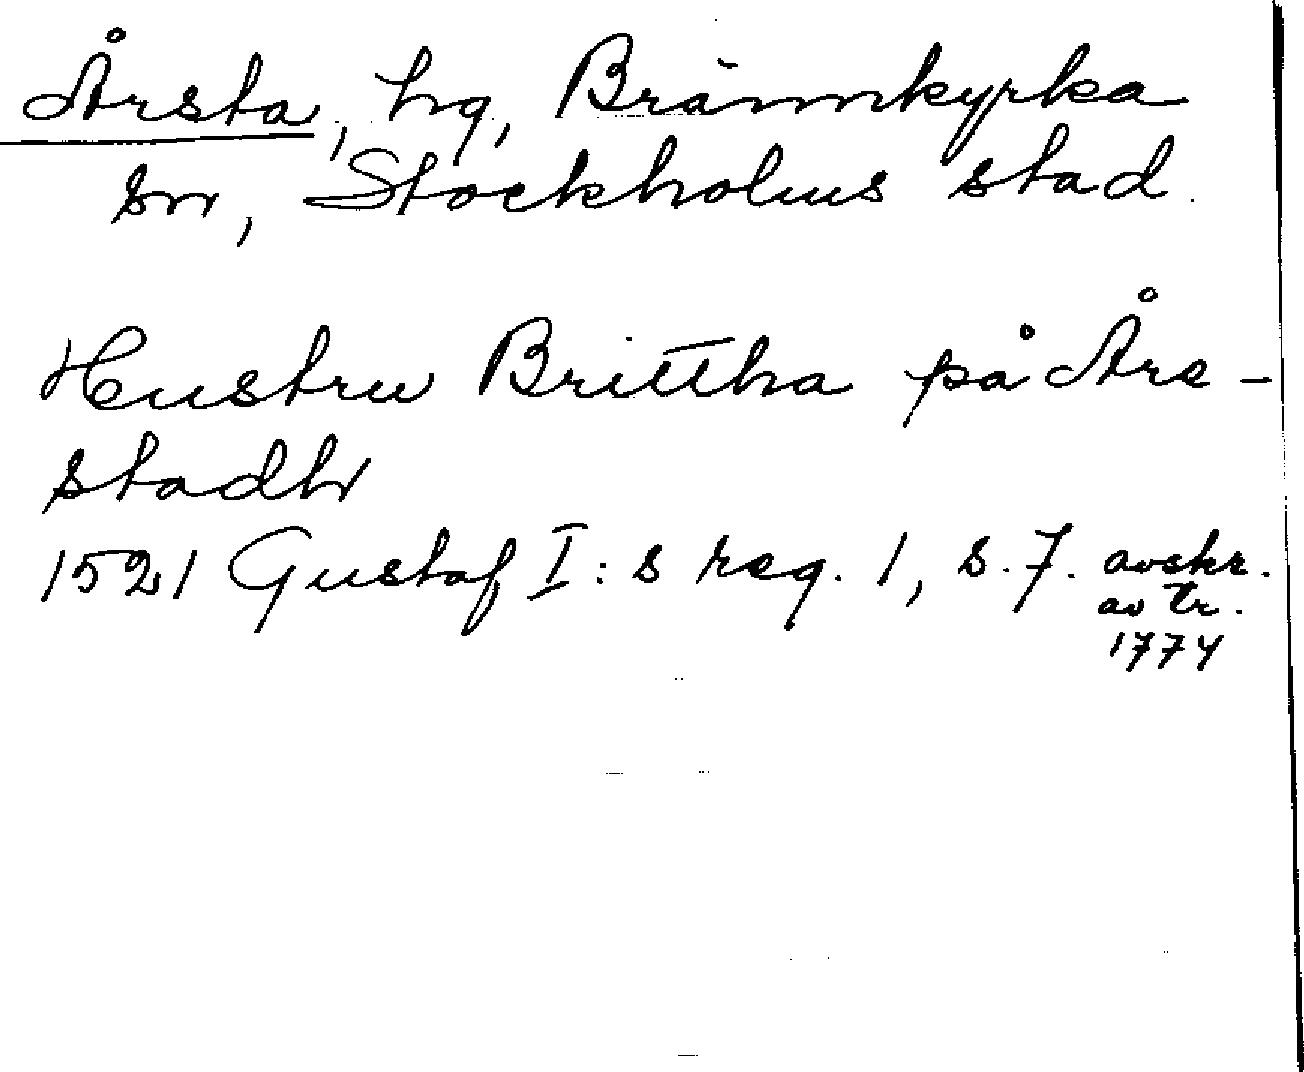 Årsta, hg, Brännkyrka
sn, Stockholms stad.
Hustru Brittha på Åre-
stadh
1521 Gustaf I:s reg. 1, s. 7. avskr.
av tr.
1774